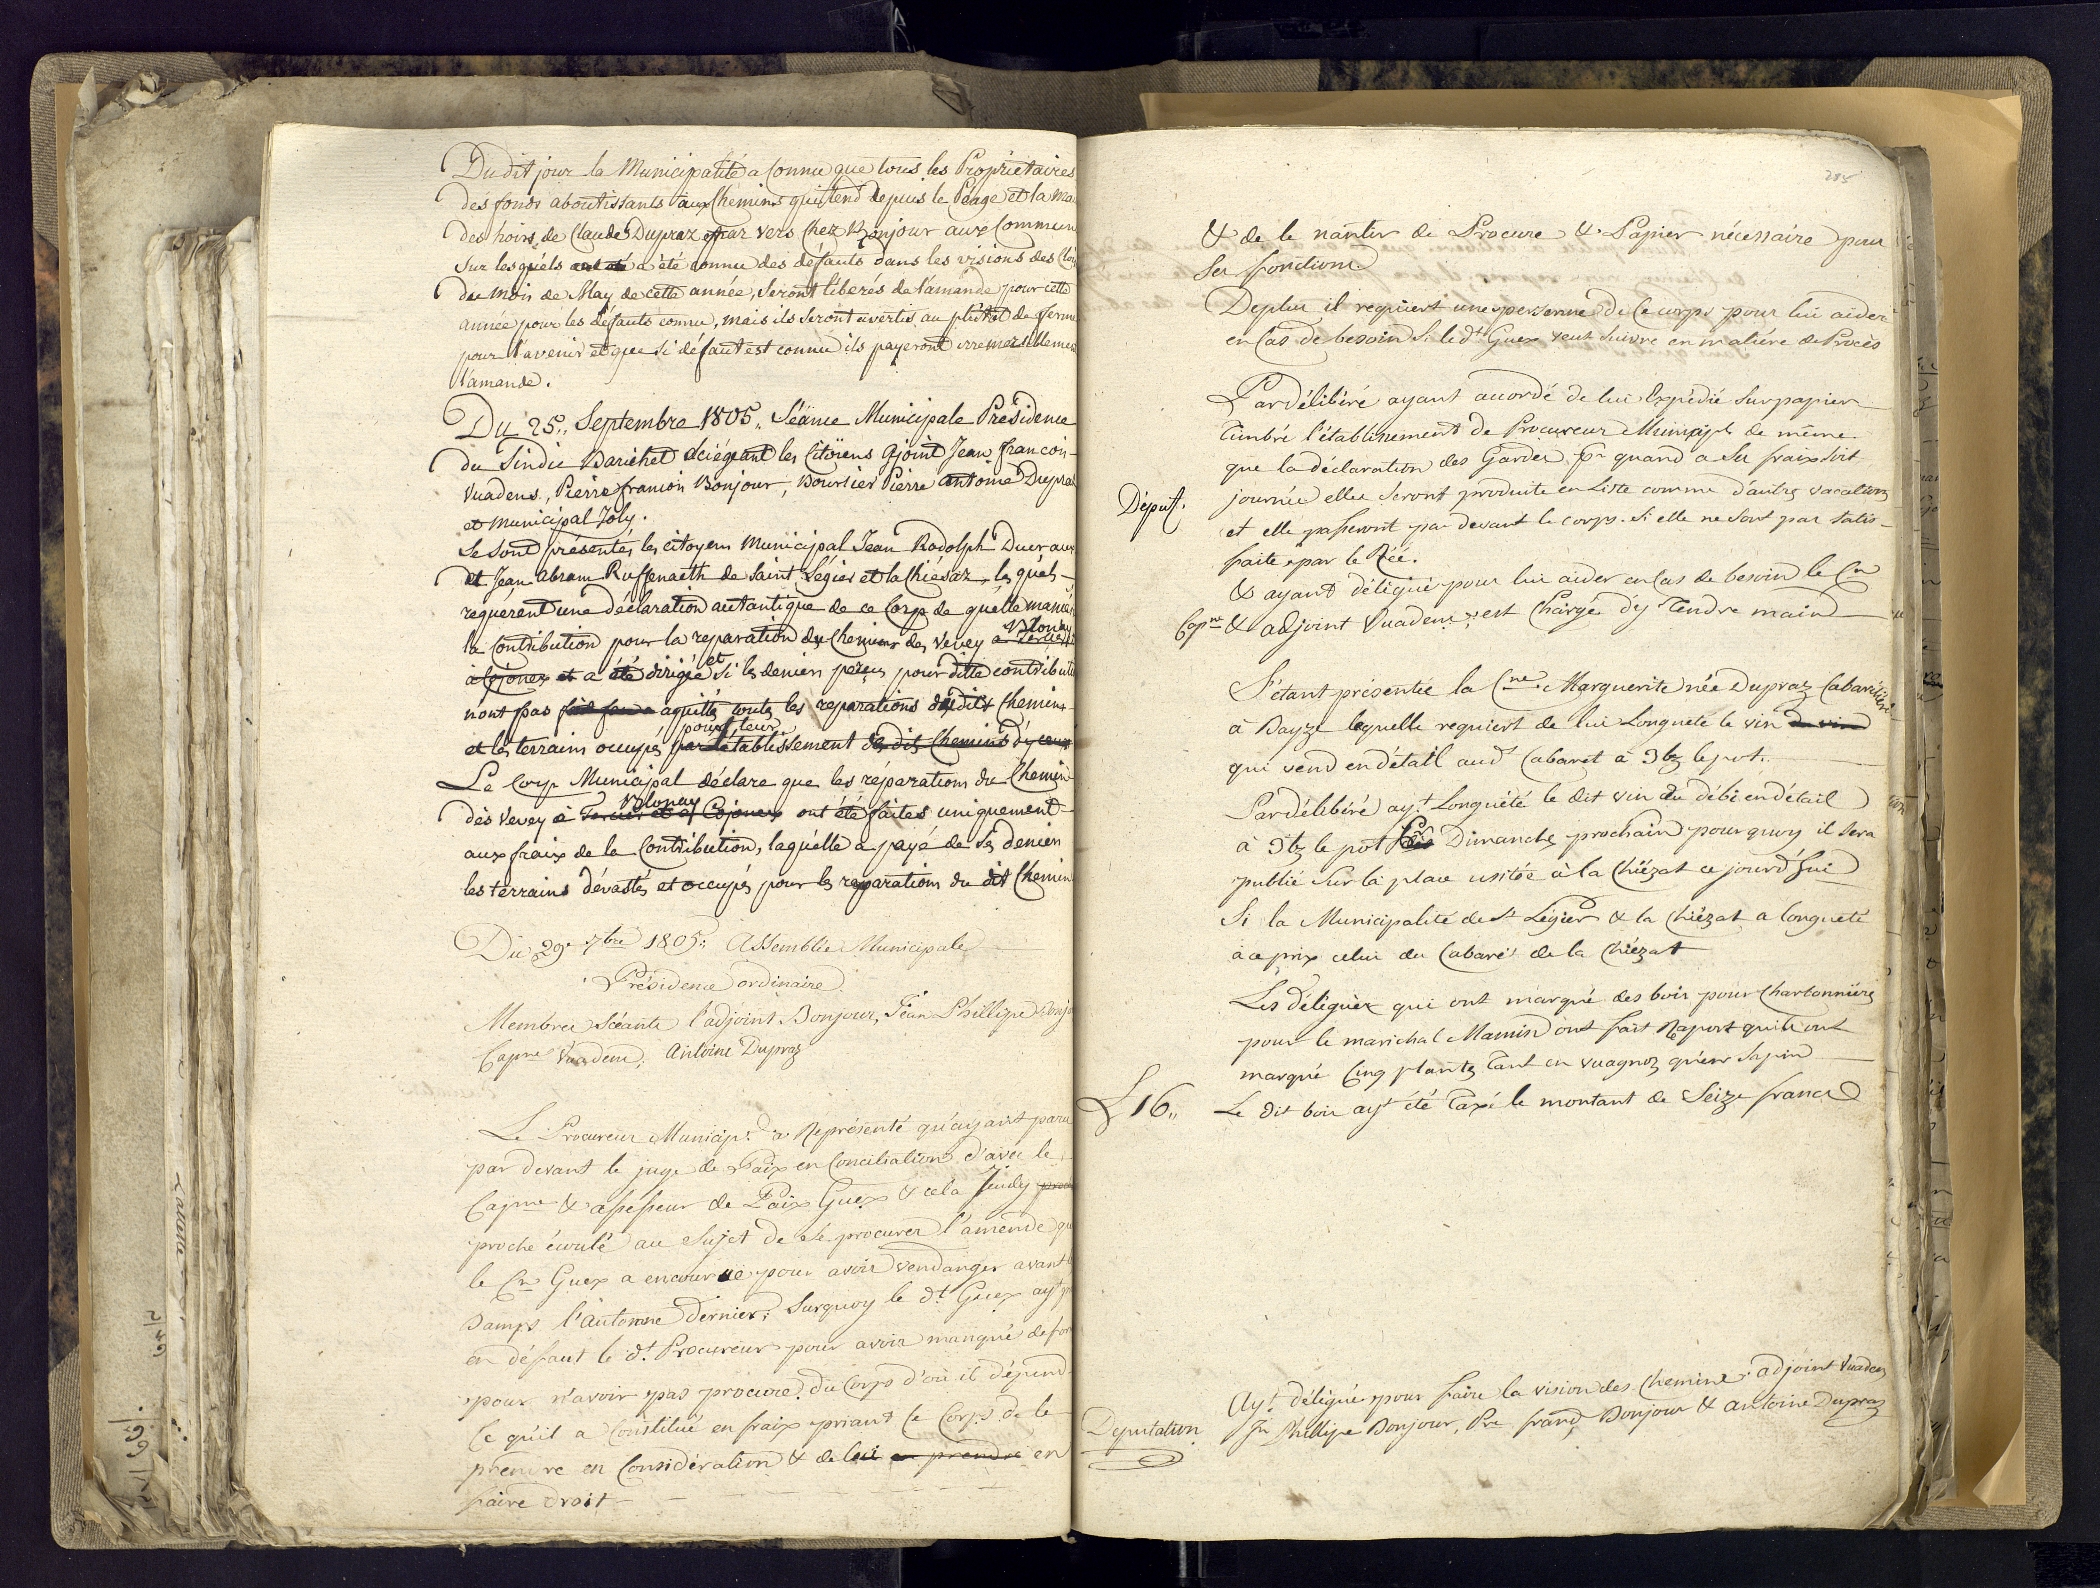 Du dit jour la Municipalité a Connu que tous les Proprietaires
des fonds aboutissants aux Chemins qui tend depuis le Péage et la Mai
des hoirs de Claude Dupraz et par vers Chez Bonjour aux Commun
sur les quels a été connu des défauts dans les visions des Clo
du mois de May de cette année, seront liberés de l'amande pour cette
année pour les défauts connu, mais ils seront avertis au plutôt de ferme
pour l'avenir et que si défaut est connu ils payeront irremissiblement
l'amande.
Du 25.. Septembre 1805.. Séance Municipale Présidence
du Sindic Barichet sciégeant les Citoïens Ajoint Jean françois
Vuadens, Pierre françois Bonjour, Boursier Pierre Antoine Dupraz
et Municipal Joly.
Se sont présentés les citoyens Municipal Jean Rodolph Ducraux
et Jean Abram Ruffenacth de Saint Légier et la Chiésaz, les quels
requérent une déclaration autantique de ce Corp de quélle manié
la Contribution pour la reparation du Chemin de Vevey à Blonay
a été dirigée et si les denier perçu pour ditte contributio
n'ont pas aquitté toutes les reparations dudit Chemin
et les terrains occupés pour leur établissement
Le Corp Municipal déclare que les réparations du Chemin
dès Vevey à Blonay ont été faites uniquement
aux fraix de la Contribution, laquélle a payé de ses denier
les terrains dévastés et occupés pour les reparations du dit Chemin
Du 29e 7bre 1805.. Assemblée Municipale
Présidence ordinaire.
Membres Scéants l'adjoint Bonjour, Jean Phillipe Bonjo
Capne Vuadens, Antoine Dupraz
Le Procureur Municipl a Représenté qu'ayant paru
par devant le juge de Paix en Conciliation d'avec le
Capne & assesseur de Paix Guex & cela Jeudy
proche écoulé au sujet de se procurer l'amende qu
le Cn Guex a encourue pour avoir vendanger avant l
Damps l'automne dernier; Surquoy le dt Guex ayt
en défaut le dt Procureur pour avoir manqué de for
pour n'avoir pas procure du Corps d'où il dépend.
Ce qu'il a Constitué en fraix priant le Corps de le
prendre en Considération & de lui en
faire droit
285
& de le nantir de Procure & Papier nécessaire pour
ses fonctions
Deplus il requiert une personne de ce corps pour lui aider
en Cas de besoin Si le dt Guex veut suivre en matiére de Procès
Par délibéré ayant accordé de lui Expédié sur papier
timbré l'établissement de Procureur Municipl de même
que la déclaration des Gardes, pr quand a ses fraix soit
Déput.
journée elles seront produite en Liste comme d'autres vacations
et elle passeront par devant le corps. Si elle ne sont par satis-
faite par le Réé.
& ayant déligué pour lui aider en Cas de besoin le Cn
Capne & adjoint Vuadens est Chargé d'y Tendre main
S'étant présentée la Cne Marguerite née Dupraz Cabaretiére
à Bayze lequelle requiert de lui Longueté le vin
qui vend en détail aud. Cabaret à 3bz le pot.
Par délibéré ayt Longuété le dit vin du débi en détail
à 3bz le pot dès Dimanche prochain pourquoy il sera
publié sur la place usitée à la Chiézat ce jourd'hui
Si la Municipalité de St Légier & la Chiézat a longueté
à ce prix celui du Cabaré de la Chiézat
Les déliguéz qui ont marqué des bois pour Chartonniére
pour le marichal Mamin ont fait Raport qu'ils ont
marqué Cinq plantes tant en vuagnoz qu'en sapin
L 16.. Le dit bois ayt été Taxé le montant de Seize francs
Ayt déligué pour faire la vision des Chemins. adjoint Vuadens
Deputation Jn Phillipe Bonjour, Pre franç. Bonjour & antoine Dupraz